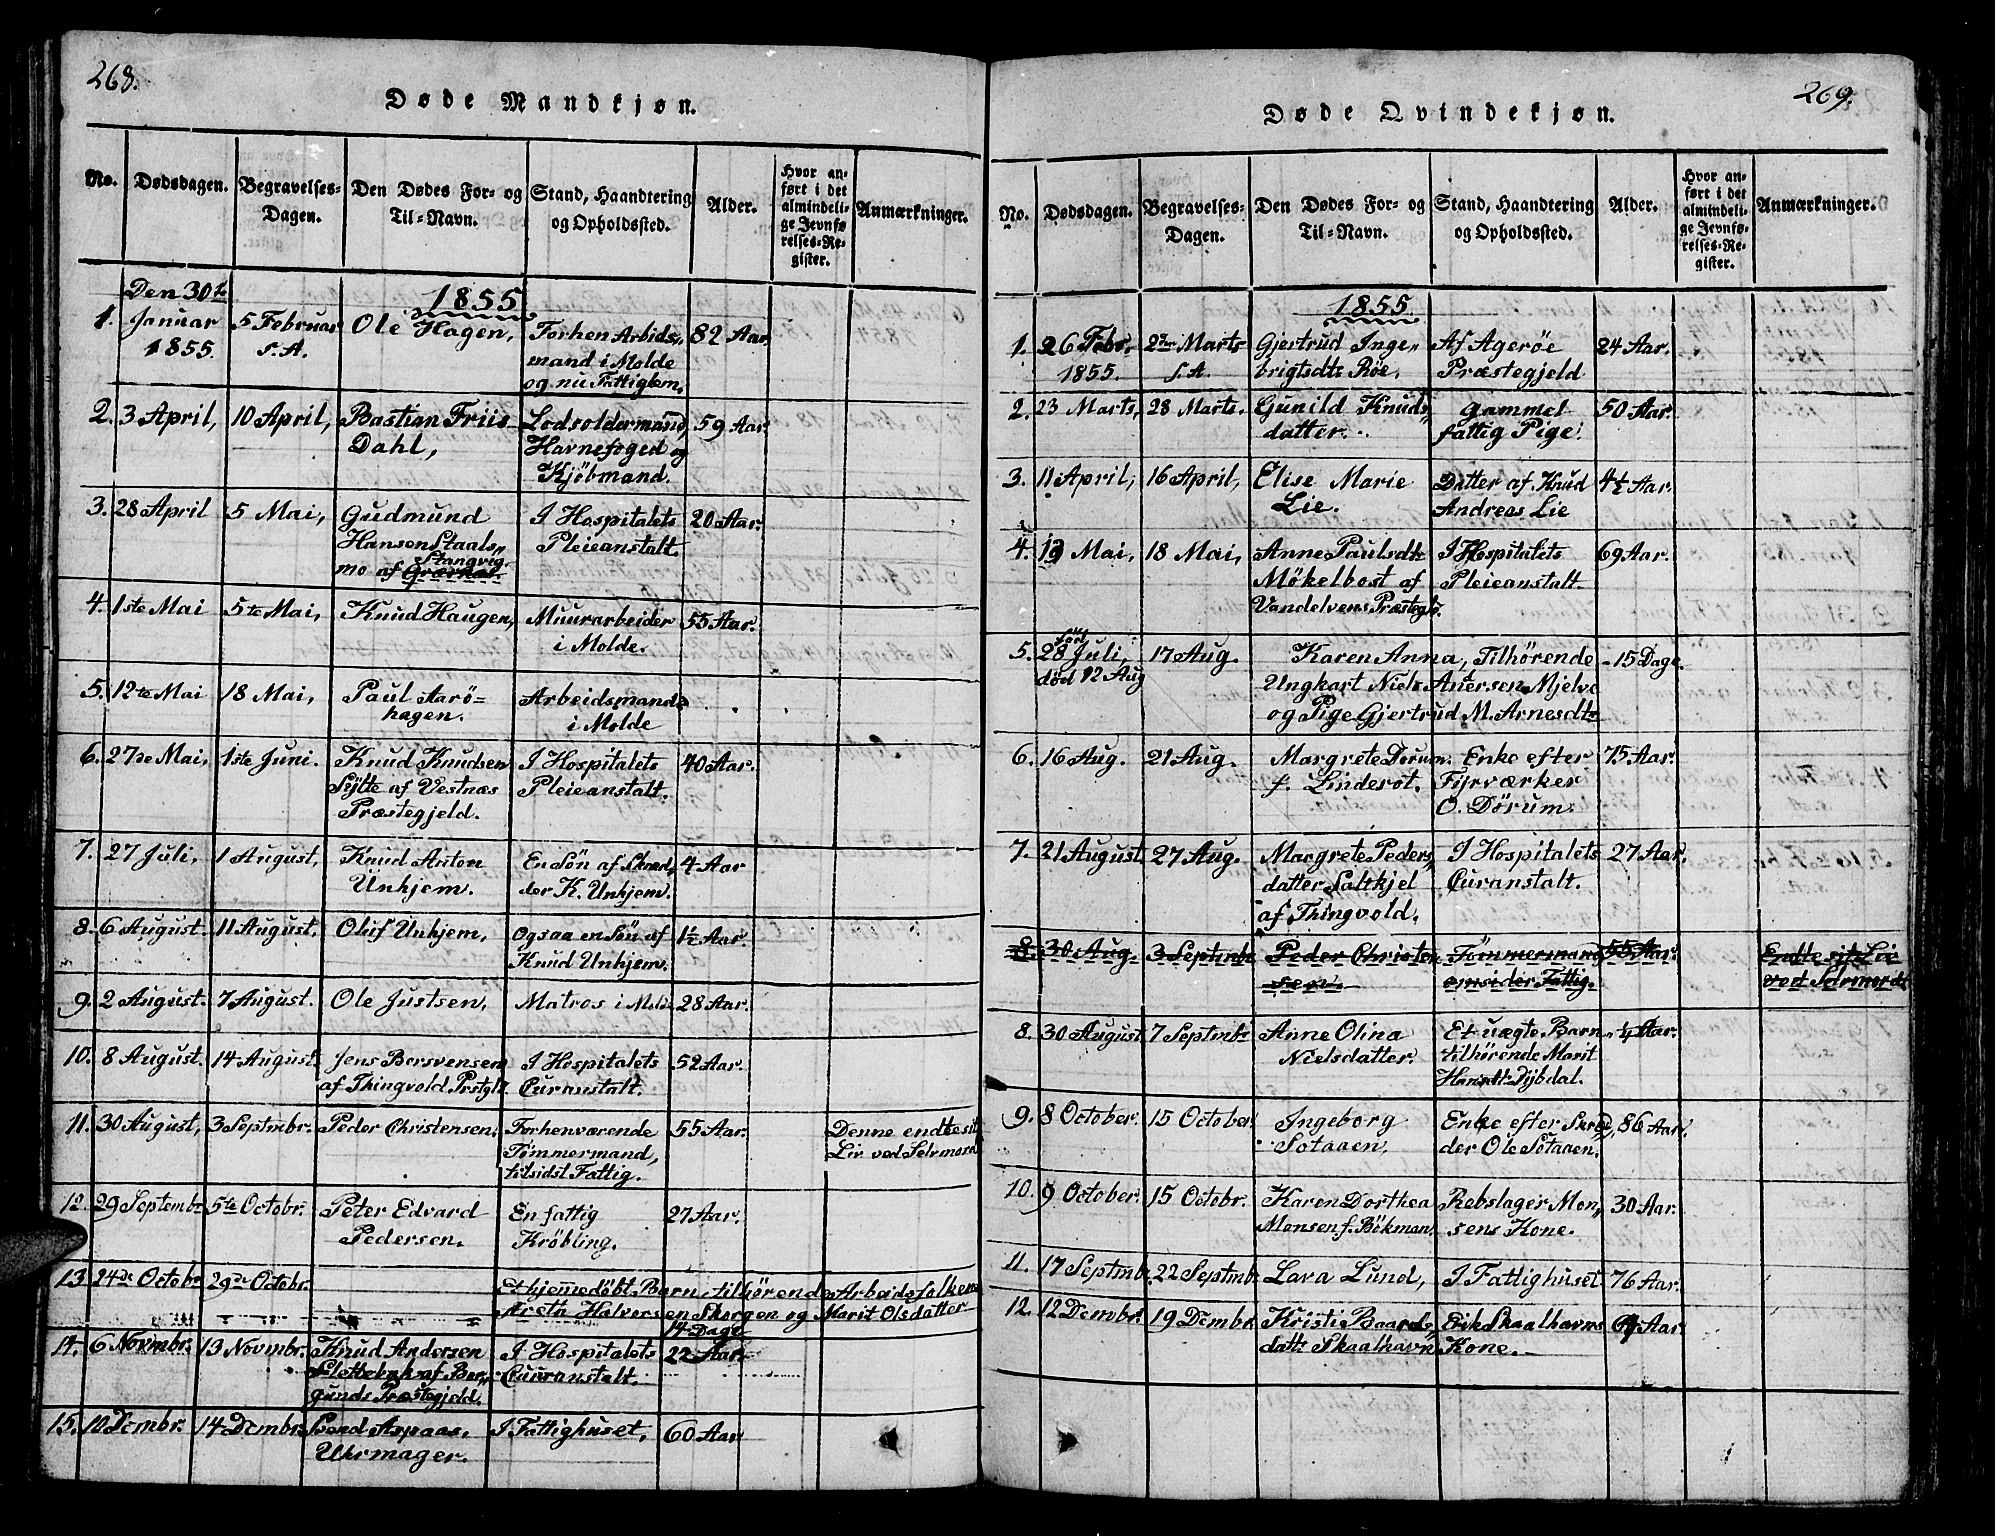 268.
Døde Mandkjøn.
No. Dødsdagen. Begravelses-Dagen. Den Dødes For- og Til-Navn. Stand, Haandtering og Opholdssted. Alder. Hvor anført i det almindelige Jevnførelses-Register. Anmærkninger.
1855
1. Den 30te Januar 1855. 5 Februar s.A. Ole Hagen, Forhen Arbids„
mand i Molde
og nu Fattiglem. 82 Aar.
2. 3 April, 10 April, Bastian Friis Dahl, Lodsoldermand,
Havnefoged og
Kjöbmand. 59 Aar.
3. 28 April 5 Mai, Gudmund
Hansen Staals„
mo af Stangvig. I Hospitalets
Pleieanstalt. 20 Aar.
4. 1ste Mai 5te Mai, Knud Haugen, Muurarbeider
i Molde. 55 Aar.
5. 12te Mai 18 Mai, Paul Aarö=
hagen. Arbeidsmand
i Molde
6. 27de Mai, 1ste Juni. Knud Knudsen
Sylte af Vestnæs
Præstegjeld. I Hospitalets
Pleieanstalt. 40 Aar.
7. 27 Juli, 1 August, Knud Anton
Unhjem. En Søn af Skræd„
der K. Unhjem. 4 Aar
8. 6 August. 11 August. Oluf Unhjem, Ogsaa en Søn af
Knud Unhjem. 1½ Aar.
9. 2 August. 7 August. Ole Justsen, Matros i Molde 28 Aar.
10. 8 August. 14 August. Jens Borsvensen
af Thingvold Prstgld. I Hospitalets
Curanstalt. 52 Aar.
11. 30 August, 3 Septmbr. Peder Christensen. Forhenværende
Tömmermand,
tilsidst Fattig. 55 Aar. Denne endte sit
Liv ved Selvmord
12. 29 Septembr 5te Octobr. Peter Edvard
Pedersen. En fattig
Kröbling. 27 Aar.
13. 24de Octobr 29de Octobr. Et hjemedöbt Barn tilhörende Arbeidsfolkene
Areta Halvorsen Skorgen og Marit Olsdatter
14 Dage
14. 6 Novmbr. 13 Novmbr. Knud Andersen
Slettebak af Bor„
gunds Præstegjeld. I Hospitalets
Cuuranstalt. 22 Aar.
15. 10 Dcmbr. 14 Dcmbr. Svend Aspaas,
Uhrmager. I Fattighuset, 60 Aar
269.
Døde Qvindekjøn.
No. Dødsdagen. Begravelses-Dagen. Den Dødes For- og Til-Navn. Stand, Haandtering og Opholdssted. Alder. Hvor anført i det almindelige Jevnførelses-Register. Anmærkninger.
1855
1. 26 Febr.
1855. 2den Marts
s.A. Gjertrud Inge„
brigtsdtr Röe, Af Ageröe
Præstegjeld 24 Aar.
2. 23 Marts, 28 Marts. Gunild Knuds„
datter. gammel
fattig Pige. 50 Aar.
3. 11 April, 16 April, Elise Marie
Lie. Datter af Knud
Andreas Lie 4½ Aar.
4. 12 Mai, 18 Mai, Anne Paulsdtr
Mökelbost af
Vandelvens Præstegld. I Hospitalets
Pleieanstalt 69 Aar.
5. fød
28 Juli,
död 12 Aug 17 Aug. Karen Anna, Tilhörende
Ungkarl Niels Andersen Mjelve
og Pige Gjertrud M. Arnesdtr 15 Dage.
6. 16 Aug. 21 Aug. Margrete Dorum.
f. Linderot. Enke efter
Fyrværker
O. Dörum. 75 Aar.
7. 21 August 27 Aug. Margrete Peders„
datter Saltkjel
af Thingvold. I Hospitalets
Curanstalt. 27 Aar.
8. 30 Aug. 3 Septmbr Peder Christen
sen. Tömmermand
omsider Fattig. 55 Aar. Endte sit Liv
ved Selvmord
8. 30 August 7 Septmbr Anne Olina
Nielsdatter. Et uægte Barn
tilhörende Marit
Hansdtr Dybdal. ¼ Aar.
9. 8 October. 15 October. Ingeborg
Sotaaen, Enke efter Skræd„
der Ole Sotaaen. 86 Aar.
10. 9 October. 15 Octobr. Karen Dorthea
Monsen f. Bökman, Rebslager Mon„
sens Kone. 30 Aar.
11. 17 Septmbr. 22 Septmbr. Lava Lund, I Fattighuset 76 Aar.
12. 12 Dcmbr. 19 Dcmbr. Kristi Baards„
dattr Skaalhavn Erik Skaalhavns
Kone. Aar.